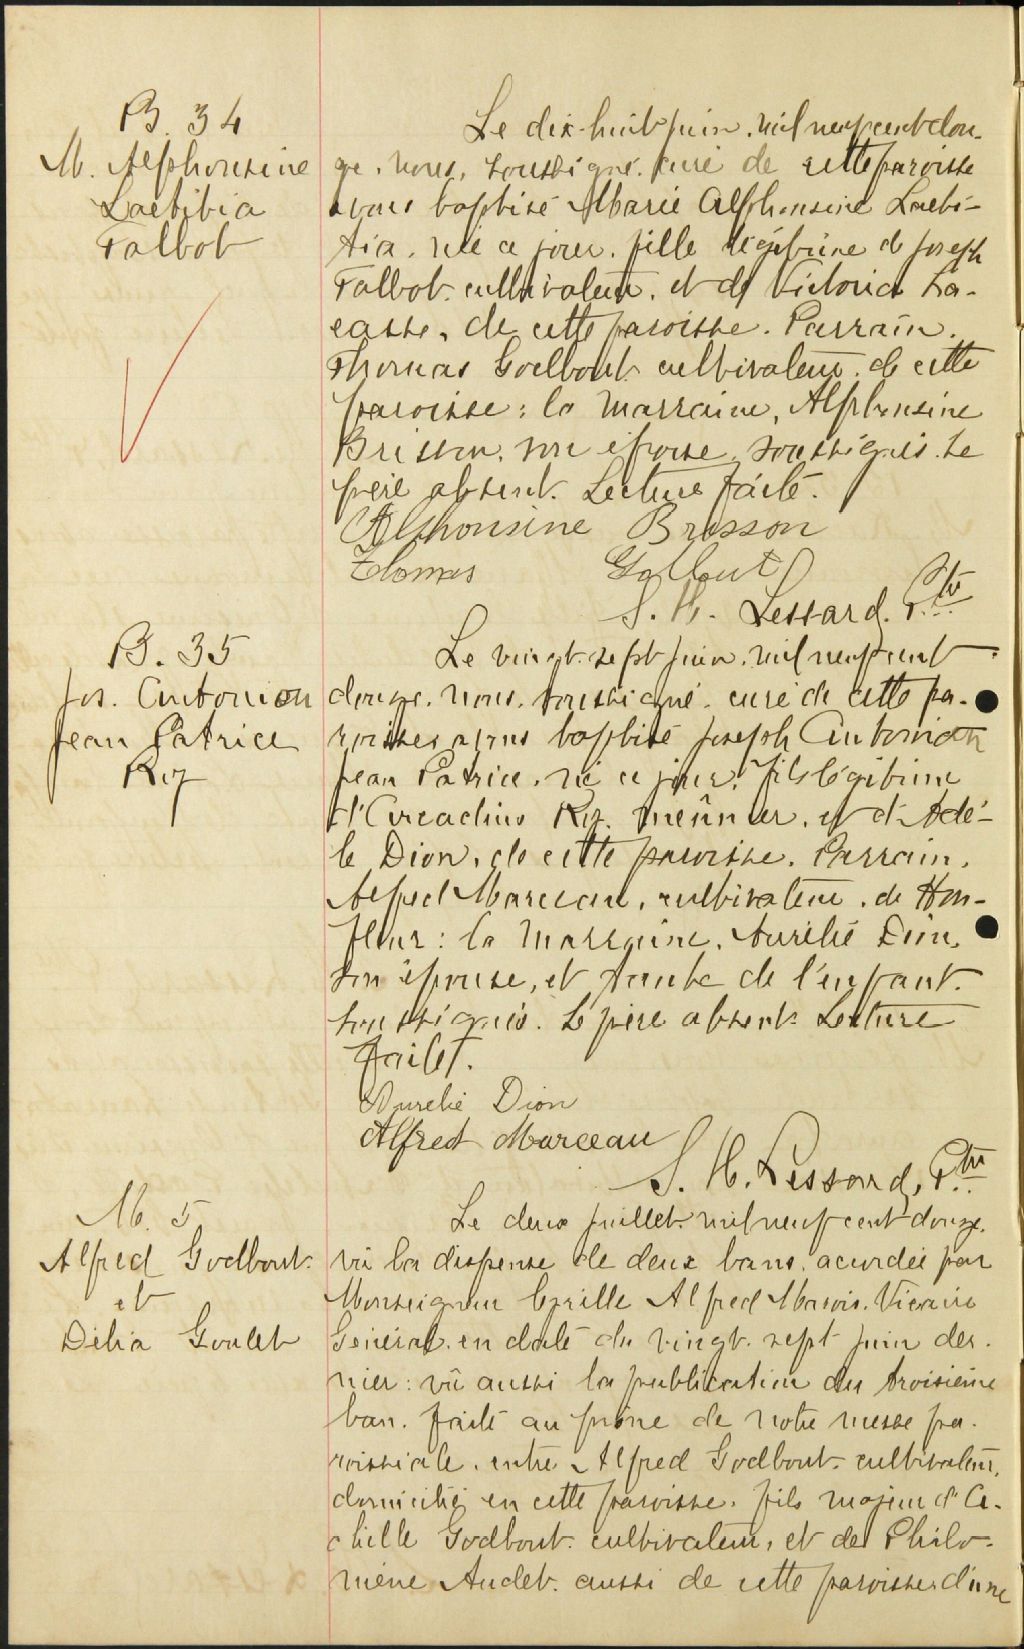 B. 34
M. Alphonsine
Laetitia
Talbot
Le dix-huit juin, mil neuf cent dou-
ze, nous, soussigné, curé de cette paroisse
avons baptisé Marie Alphonsine Laeti-
tia, née ce jour, fille légitime de Joseph
Talbot, cultivateur, et de Victoria La-
casse, de cette paroisse. Parrain,
Thomas Godbout, cultivateur, de cette
paroisse; la marraine, Alphonsine
Brisson, son épouse, soussignés. Le
père absent. Lecture faite.
Alphonsine Brisson
Thomas Godbout
S. H. Lessard, Ptre
B. 35
Jos. Antonion
Jean Patrice
Roy
Le vingt-sept juin, mil neuf cent
douze, nous, soussigné, curé de cette pa-
roisse, avons baptisé Joseph Antonion
Jean Patrice, né ce jour, fils légitime
d'Arcadius Roy, meûnier, et d'Adè-
le Dion, de cette paroisse. Parrain,
Alfred Marceau, cultivateur, de Hon-
fleur: la marraine, Aurélie Dion,
son épouse, et tante de l'enfant.
soussignés. Le père absent. Lecture
faite.
Aurelie Dion
Alfred Marceau
S. H. Lessard, Ptre
M. 5
Alfred Godbout
et
Délia Goulet
Le deux juillet, mil neuf cent douze,
vû la dispense de deux bans, accordée par
Monseigneur Cyrille Alfred Marois, Vicaire
Général, en date du vingt-sept juin der-
nier: vû aussi la publication du troisième
ban, faite au prône de notre messe pa-
roissiale, entre Alfred Godbout, cultivateur,
domicilié en cette paroisse, fils majeur d'A-
chille Godbout, cultivateur, et de Philo-
mène Audet, aussi de cette paroisse, d'une